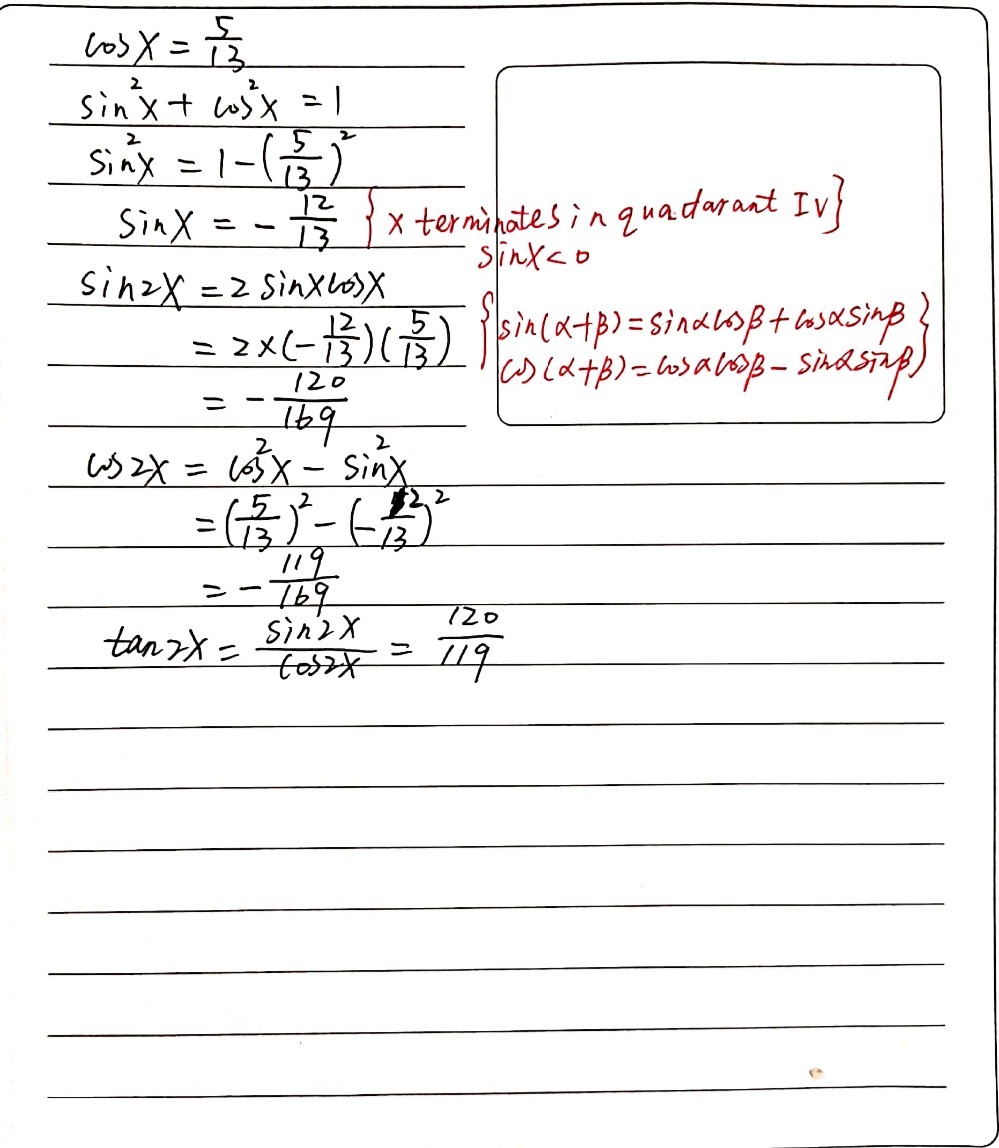 cos x = 5/13
sin²x + cos²x = 1
sin²x = 1 - (5/13)²
sin x = - 12/13 { x terminates in quadarant IV}
sin x < 0
sin2x = 2 sin x cos x
= 2 × (- 12/13)(5/13) { sin(α+β) = sinα cosβ + cosα sinβ
cos(α+β) = cosα cosβ - sinα sinβ }
= - 120/169
cos 2x = cos²x - sin²x
= (5/13)² - (- 12/13)²
= - 119/169
tan2x = sin2x/cos2x = 120/119